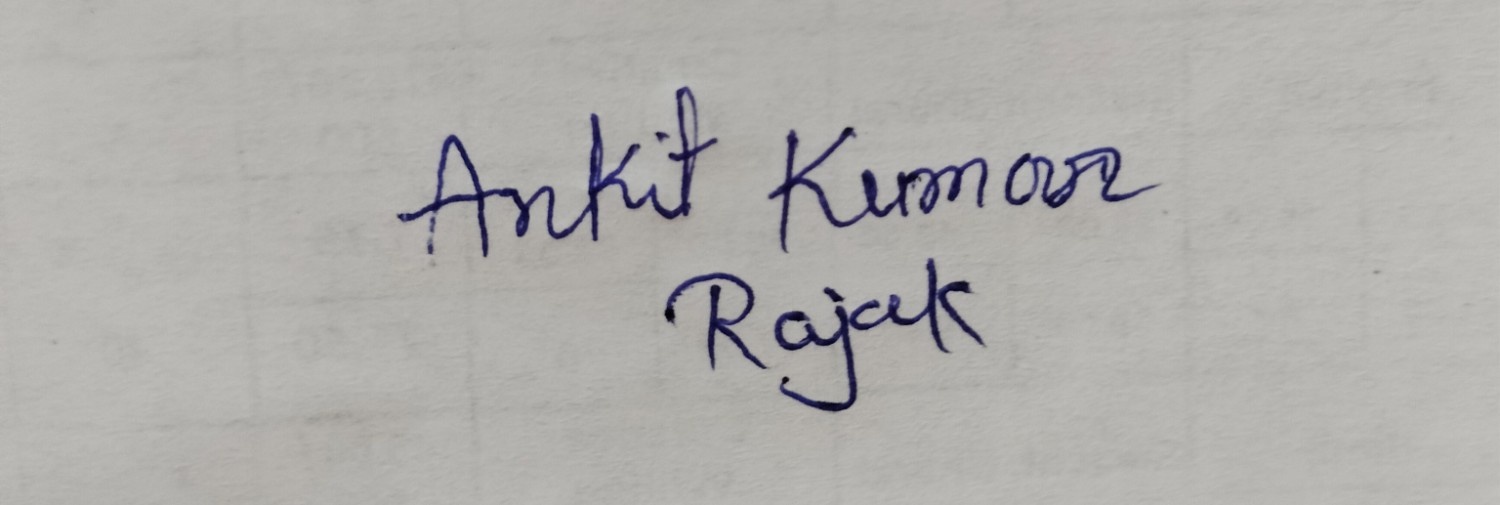 Ankit Kumar
Rajak